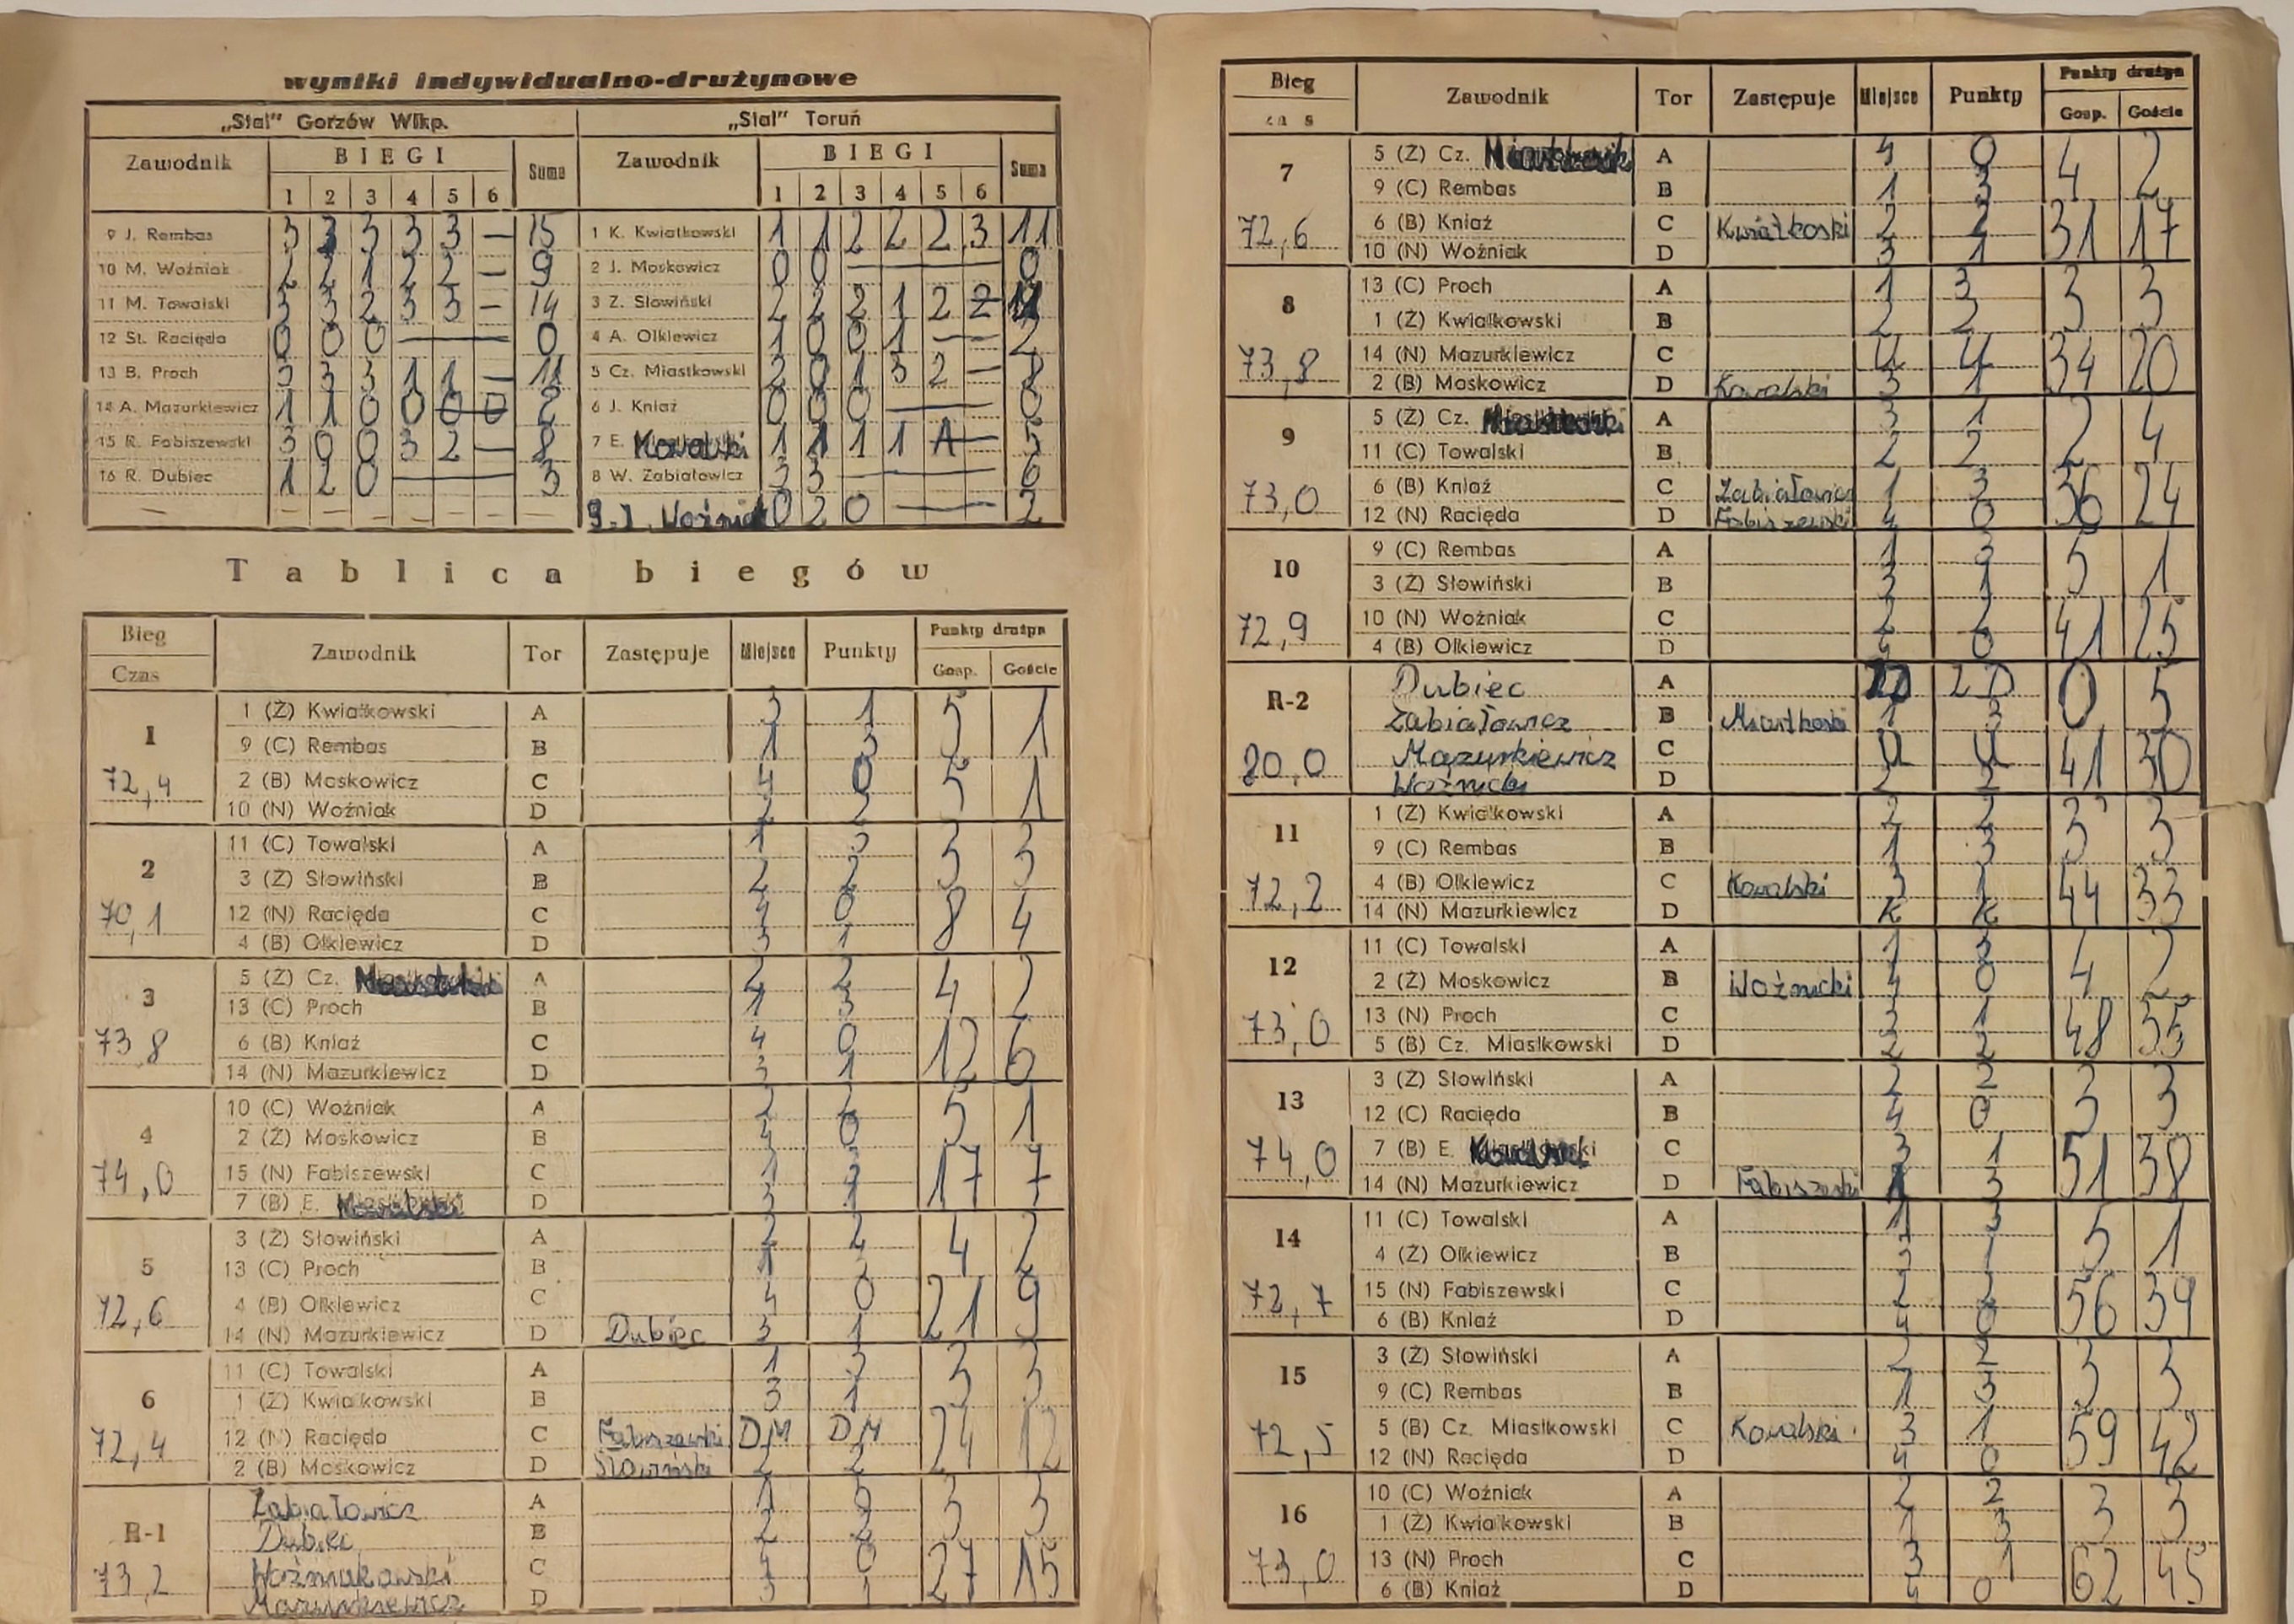 wyniki indywidualno-drużynowe
„Stal" Gorzów Wlkp. „Stal" Toruń
Zawodnik BIEGI Suma Zawodnik BIEGI Suma
1 2 3 4 5 6 1 2 3 4 5 6
9 J. Rembas 3 3 3 3 3 — 15 1 K. Kwiatkowski 1 1 2 2 2 3 11
10 M. Woźniak 2 2 1 2 2 — 9 2 J. Moskowicz 0 0 — 0
11 M. Towalski 3 3 2 3 3 — 14 3 Z. Słowiński 2 2 2 1 2 2
12 St. Racięda 0 0 0 — 0 4 A. Olkiewicz 1 0 0 1 — — 2
13 B. Proch 3 3 3 1 1 — 11 5 Cz. Miastkowski 2 0 1 3 2 — 8
14 A. Mazurkiewicz 1 1 0 0 0 0 2 6 J. Kniaź 0 0 0 — 0
15 R. Fabiszewski 3 0 0 3 2 — 8 7 E. Kowalski 1 1 1 1 1 — 5
16 R. Dubiec 1 2 0 — 3 8 W. Żabiałowicz 3 3 — 6
— — — — — — — — 9. J. Woźnicki 0 2 0 — 2
Tablica biegów
Bieg Zawodnik Tor Zastępuje Miejsce Punkty Punkty drużyn
Czas Gosp. Goście
1 1 (Ż) Kwiatkowski A 3 1 5 1
9 (C) Rembas B 1 3
72,4 2 (B) Moskowicz C 4 0 5 1
10 (N) Woźniak D 2 2
2 11 (C) Towalski A 1 3 3 3
3 (Ż) Słowiński B 2 2
70,1 12 (N) Racięda C 4 0 8 4
4 (B) Olkiewicz D 3 1
3 5 (Ż) Cz. A 2 2 4 2
13 (C) Proch B 1 3
73 8 6 (B) Kniaź C 4 0 12 6
14 (N) Mazurkiewicz D 3 1
4 10 (C) Woźniak A 2 2 5 1
2 (Ż) Moskowicz B 4 0
74,0 15 (N) Fabiszewski C 1 3 17 7
7 (B) E. D 3 1
5 3 (Ż) Słowiński A 2 2 4 2
13 (C) Proch B 1 3
72,6 4 (B) Olkiewicz C 4 0 21 9
14 (N) Mazurkiewicz D Dubiec 3 1
6 11 (C) Towalski A 1 3 3 3
1 (Ż) Kwiatkowski B 3 1
72,4 12 (N) Racięda C Fabiszewski DM DM 24 12
2 (B) Moskowicz D Słowiński 2 2
R-1 Żabiałowicz A 1 3 3 3
Dubiec B 2 2
73,2 C 4 0 27 15
Mazurkiewicz D 3 1
Bieg Zawodnik Tor Zastępuje Miejsce Punkty Punkty drużyn
Gosp. Goście
7 5 (Ż) Cz. A 4 0 4 2
9 (C) Rembas B 1 3
72,6 6 (B) Kniaź C Kwiatkoski 2 2 31 17
10 (N) Woźniak D 3 1
8 13 (C) Proch A 1 3 3 3
1 (Ż) Kwiatkowski B 2 2
73,8 14 (N) Mazurkiewicz C U U 34 20
2 (B) Moskowicz D Kowalski 3 1
9 5 (Ż) Cz. A 3 1 2 4
11 (C) Towalski B 2 2
73,0 6 (B) Kniaź C Żabiałowicz 1 3 36 24
12 (N) Racięda D Fabiszewski 4 0
10 9 (C) Rembas A 1 3 5 1
3 (Ż) Słowiński B 3 1
72,9 10 (N) Woźniak C 2 2 41 25
4 (B) Olkiewicz D 4 0
R-2 Dubiec A 2D 0 5
Żabiałowicz B Miastkoski 1 3
80,0 Mazurkiewicz C U U 41 30
Woźnicki D 2 2
11 1 (Ż) Kwiatkowski A 2 2 3 3
9 (C) Rembas B 1 3
72,2 4 (B) Olkiewicz C Kowalski 3 1 44 33
14 (N) Mazurkiewicz D K K
12 11 (C) Towalski A 1 3 4 2
2 (Ż) Moskowicz B Woźnicki 4 0
73,0 13 (N) Proch C 3 1 48 35
5 (B) Cz. Miastkowski D 2 2
13 3 (Ż) Słowiński A 2 2 3 3
12 (C) Racięda B 4 0
74,0 7 (B) E. Kowalski C 3 1 51 38
14 (N) Mazurkiewicz D Fabiszeski 1 3
14 11 (C) Towalski A 1 3 5 1
4 (Ż) Olkiewicz B 3 1
72,7 15 (N) Fabiszewski C 2 2 56 39
6 (B) Kniaź D 4 0
15 3 (Ż) Słowiński A 2 2 3 3
9 (C) Rembas B 1 3
72,5 5 (B) Cz. Miastkowski C Kowalski 3 1 59 42
12 (N) Racięda D 4 0
16 10 (C) Woźniak A 2 2 3 3
1 (Ż) Kwiatkowski B 1 3
73,0 13 (N) Proch C 3 1 62 45
6 (B) Kniaź D 4 0